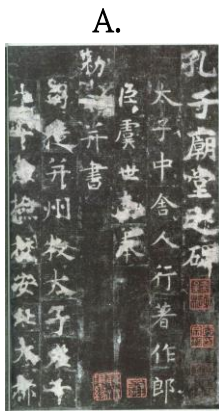 A.
孔子廟堂之碑
太子中舍人行著作郎
臣虞世南奉
勅 并書
司徒并州牧太子左千
牛率兼檢校安北大都